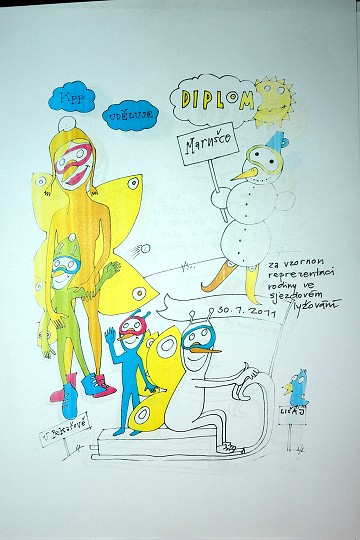 KPP
UDĚLUJE
DIPLOM
Marušce
za vzornou
reprezentaci
rodiny ve
sjezdovém
lyžování
30.7.2011
LIŠAJ